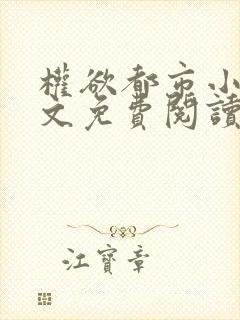 權欲都市小
文免費閱讀
江寶章